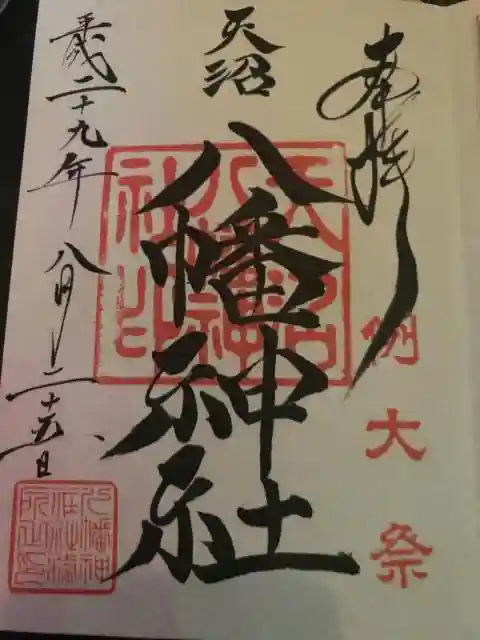 奉拝
例大祭
天沼
八幡神社
天沼八幡神社印
平成二十九年八月二十五日